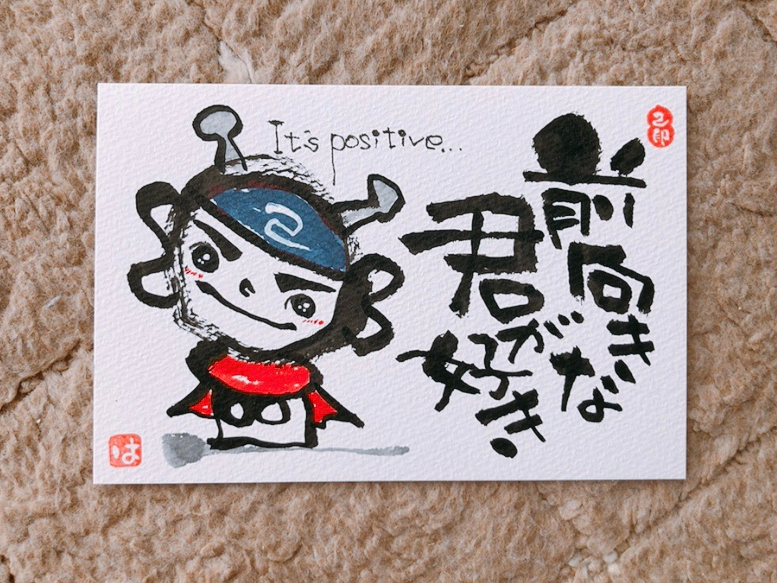 It's positive...
前向きな
君が
好き
は